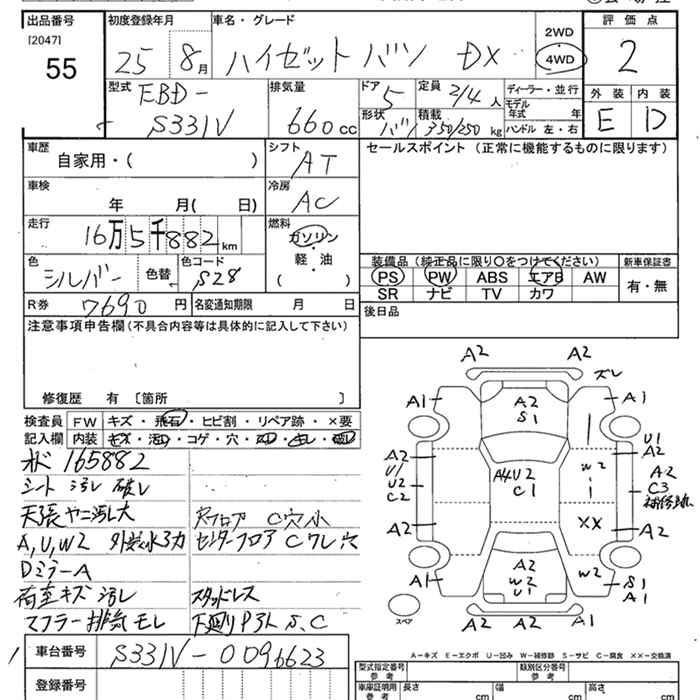 出品番号 初度登録年月 車名・グレード 2WD 評価点
[2047] 25 8月 ハイゼットバン DX 4WD 2
55 型式 排気量 ドア 定員 ディーラー・並行 外装 内装
EBD- 5 2/4人 モデル年式 年 E D
S331V 660cc 形状 バン 積載 350/250kg ハンドル 左・右
車歴 シフト セールスポイント (正常に機能するものに限ります)
自家用・( ) AT
車検 冷房
年 月( 日) AC
走行 燃料
16万5千882km ガソリン
軽・油
色 色コード ( ) 装備品 (純正品に限り○をつけてください) 新車保証書
シルバー 色替 S28 PS PW ABS エアB AW 有・無
SR ナビ TV カワ
R券 7690円 名変通知期限 月 日 後日品
注意事項申告欄(不具合内容等は具体的に記入して下さい)
修復歴 有 〔箇所 〕
検査員 FW キズ・飛石・ヒビ割・リペア跡・×要
記入欄 内装 コゲ・穴
165882
シート 汚レ 破レ
天張ヤニ汚レ大 Rフロア C穴小
A,U,W2 センターフロア C ワレ穴
DミラーA
荷室キズ汚レ スタッドレス
マフラー排気モレ 下廻り S、C
A2 A2
ズレ
A1 A2 A1
S1
A2 U1
U1 A2
U2 A4U2 W2 A2
C2 C1 C3
A2 XX A2
A1 A2 W2 S1
W2 A1
U1
スペア A2 A2
A-キズ E-エクボ U-凹み W-補修跡 S-サビ C-腐食 XX-交換済
車台番号 S331V-0096623 型式指定番号 類別区分番号
参考 参考
登録番号 車庫証明用 長さ 幅 高さ
参考 cm cm cm